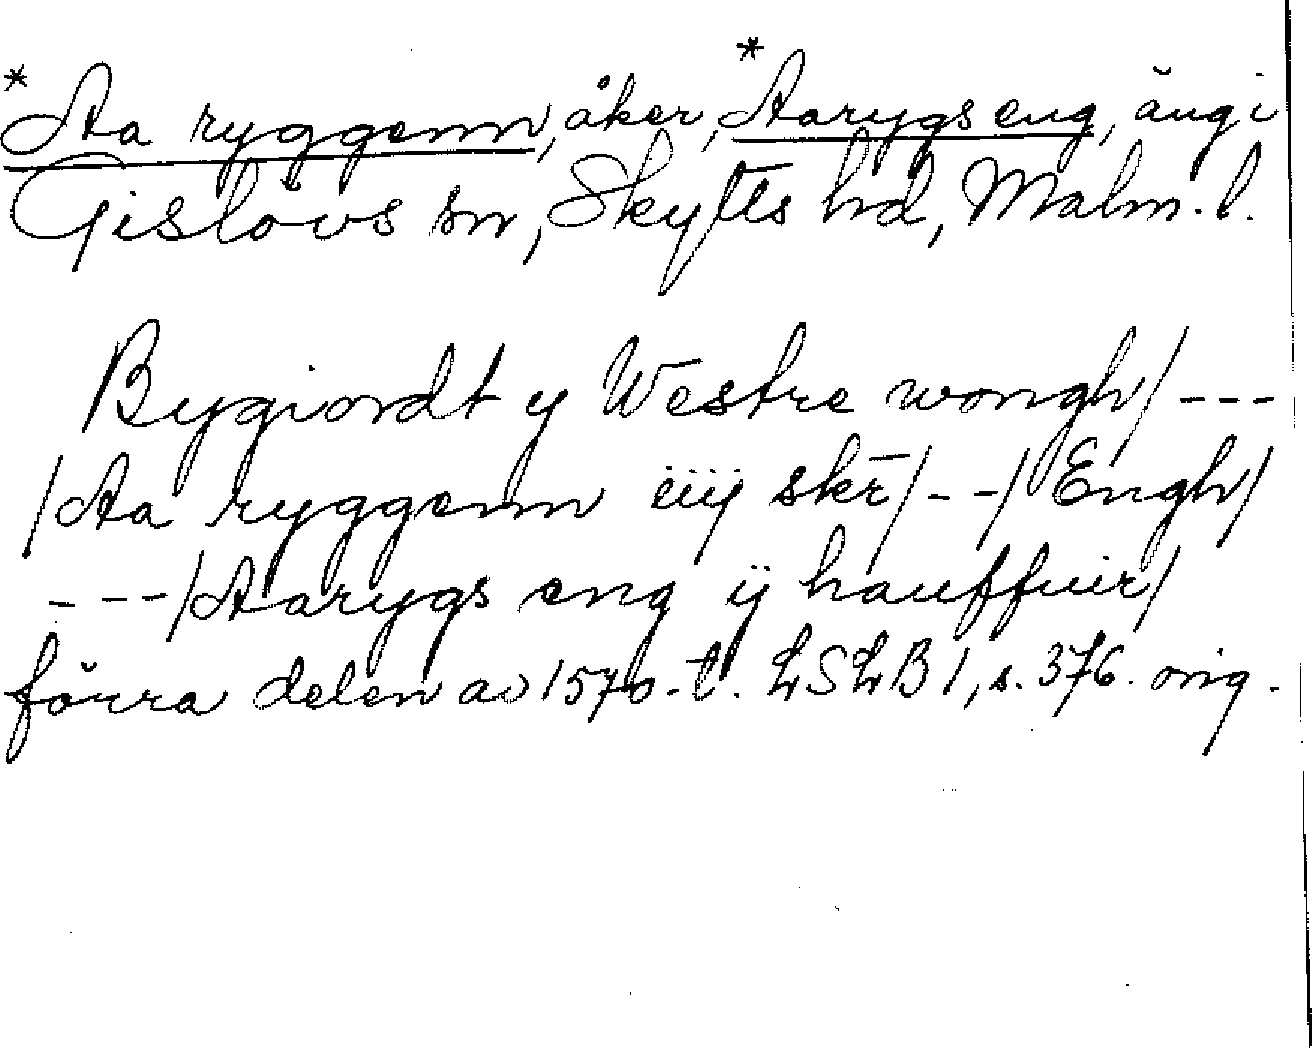 *Aa ryggenn, åker, *Aarygs eng, äng i
Gislövs sn, Skytts hd, Malm. l.
Bygiordt y Westre wongh/ ---
/Aa ryggenn iiij skē/ -- / Engh/
--- /Aarygs eng ij hauffuir/
förra delen av 1570-t. LSLB 1, s. 376. orig.